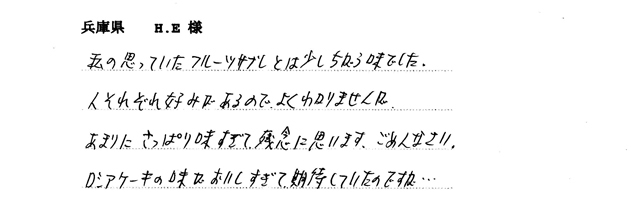 兵庫県 H.E 様
私の思っていたフルーツサブレとは少しちがう味でした。
人それぞれ好みがあるので、よくわかりませんが、
あまりに さっぱり味すぎて残念に思います、ごめんなさい。
ロシアケーキの味がおいしすぎて、期待していたのですが…